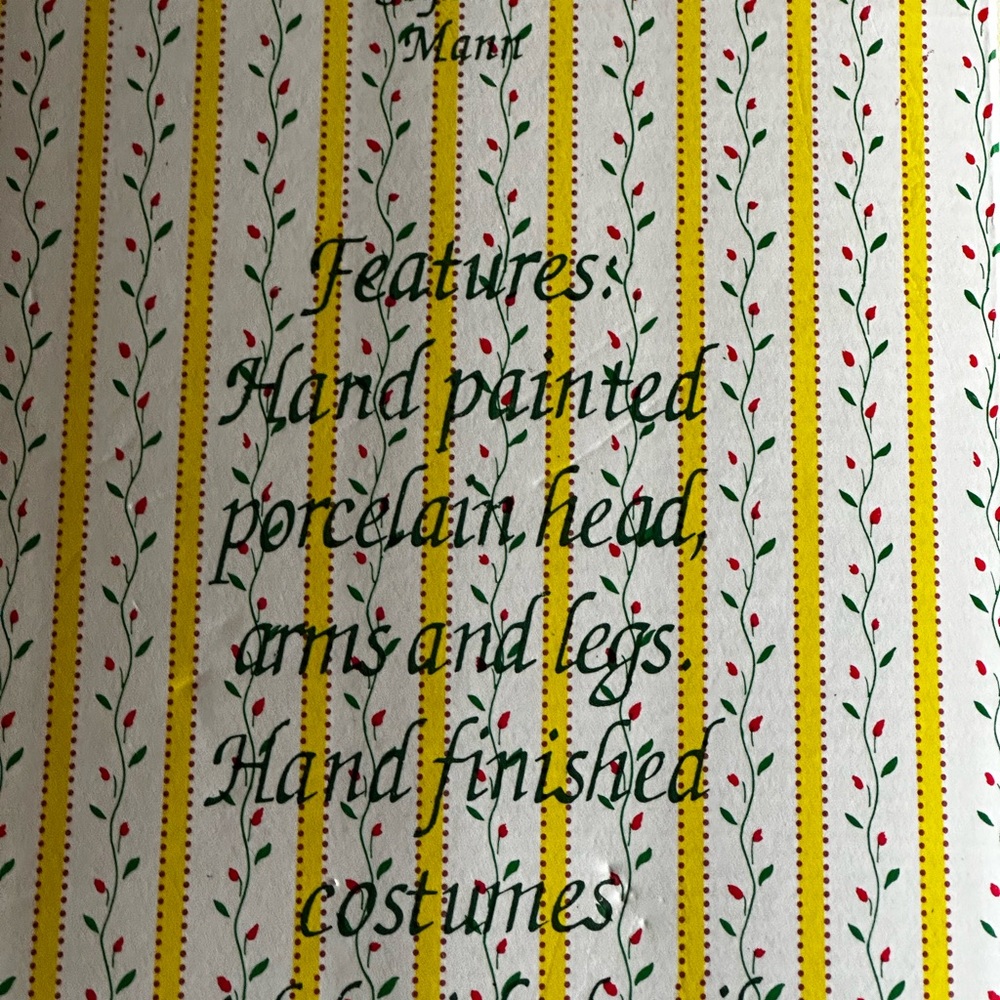 Mann
Features:
Hand painted
porcelain head,
arms and legs.
Hand finished
costumes